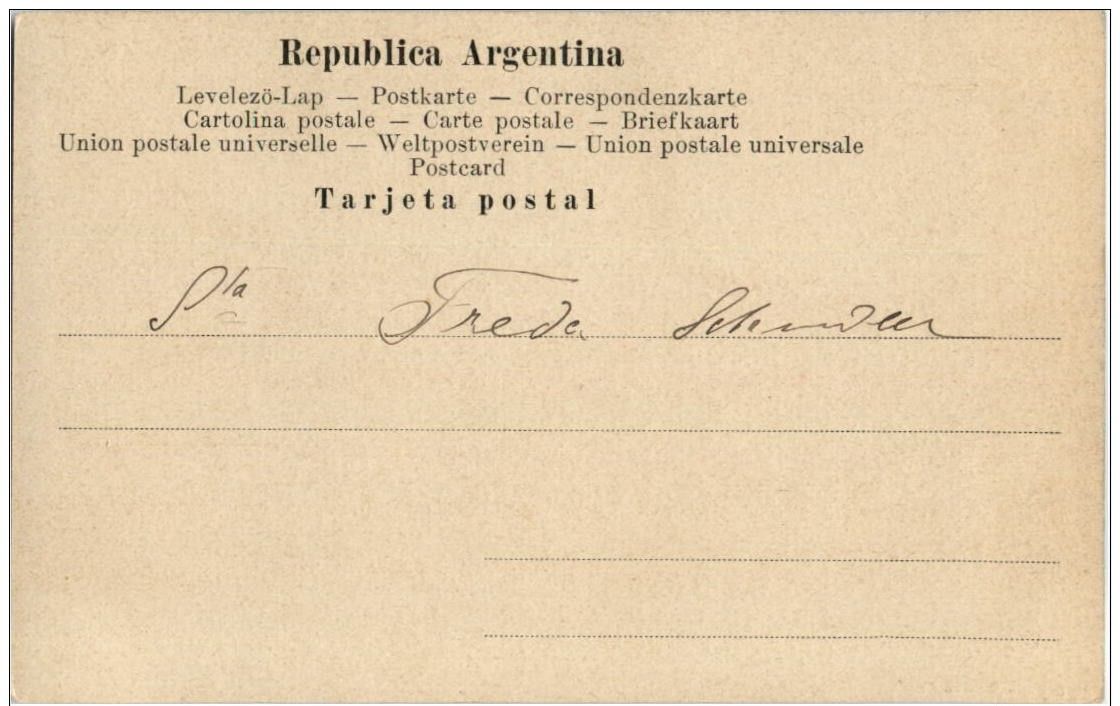 Republica Argentina
Levelezö-Lap — Postkarte — Correspondenzkarte
Cartolina postale — Carte postale — Briefkaart
Union postale universelle — Weltpostverein — Union postale universale
Postcard
Tarjeta postal
Sta Freda